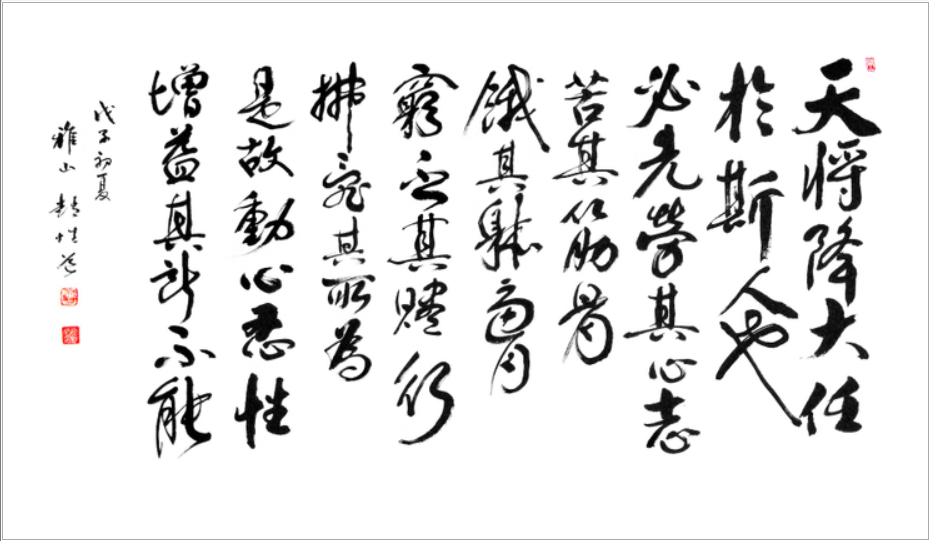 天将降大任
於斯人也
必先勞其心志
苦其筋骨
餓其體膚
窮乏其行
拂亂其所為
是故動心忍性
增益其所不能
戊子初夏
雅山